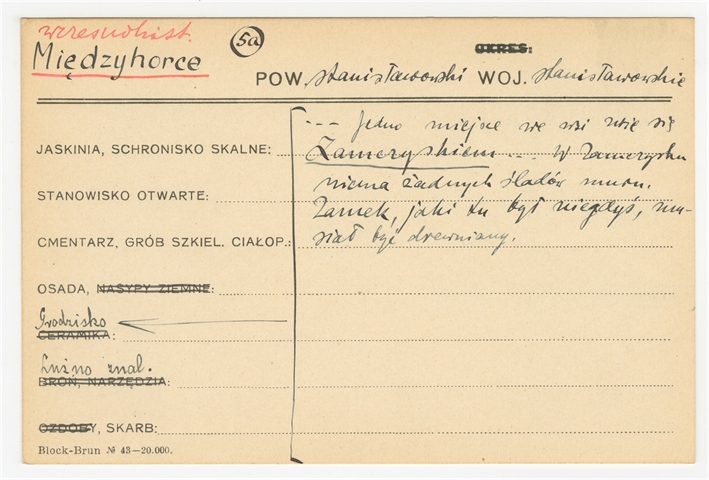 wczesnohist.
Międzyhorce
5a
OKRES:
POW. stanisławowski WOJ. stanisławowskie
--- Jedno miejsce we wsi zwie się
JASKINIA, SCHRONISKO SKALNE: Zameczyskiem --- W Zameczysku
niema żadnych śladów muru.
STANOWISKO OTWARTE:
Zamek, jaki tu był niegdyś, mu-
CMENTARZ, GRÓB SZKIEL. CIAŁOP.: siał być drewniany.
OSADA, NASYPY ZIEMNE:
Grodzisko
CERAMIKA:
Luźno znal.
BROŃ, NARZĘDZIA:
OZDOBY, SKARB:
Block-Brun № 43—20.000.